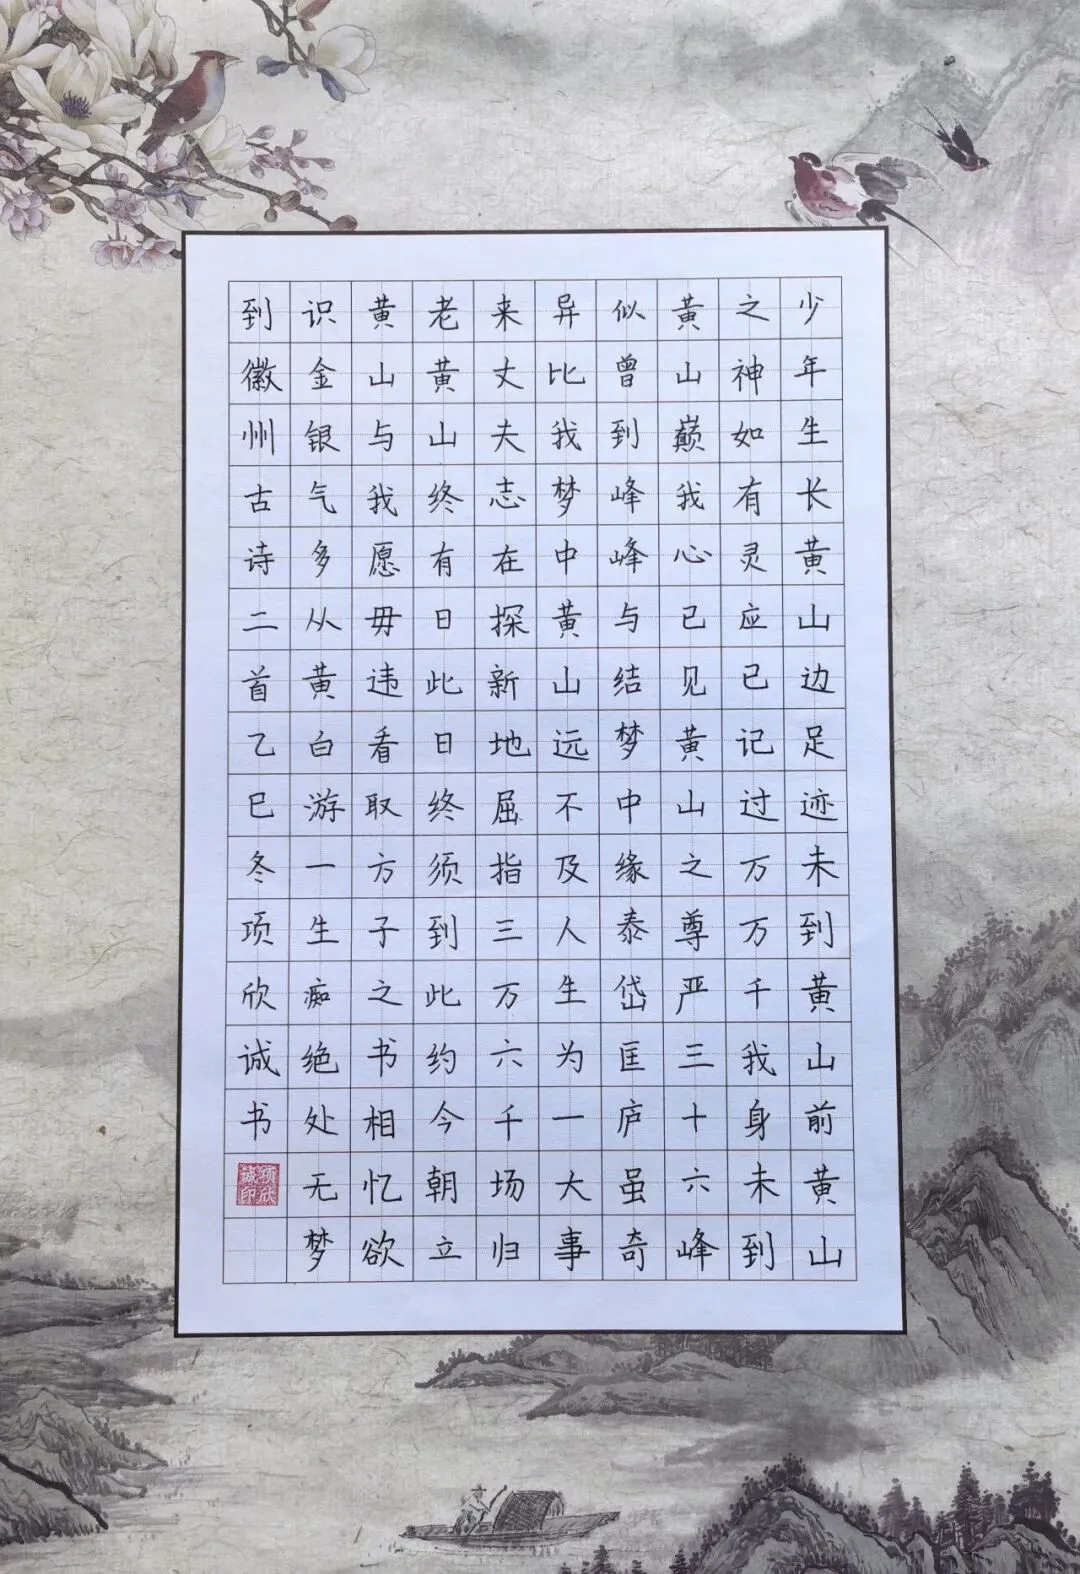 少年生长黄山边足迹未到黄山前黄山
之神如有灵应已记过万万千我身未到
黄山巅我心已见黄山之尊严三十六峰
似曾到峰峰与结梦中缘泰岱匡庐虽奇
异比我梦中黄山远不及人生为一大事
来丈夫志在探新地屈指三万六千场归
老黄山终有日此日终须到此约今朝立
黄山与我愿毋违看取方子之书相忆欲
识金银气多从黄白游一生痴绝处无梦
到徽州古诗二首乙巳冬项欣诚书
项欣诚印